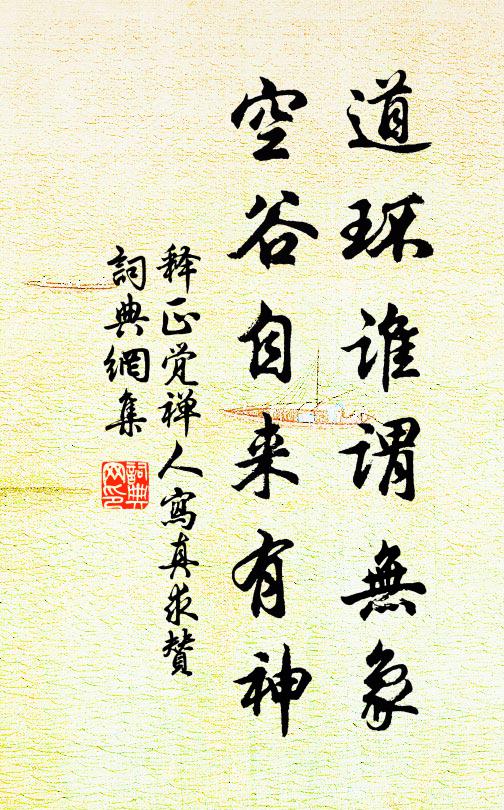 道环谁谓無象
空谷自来有神
释正觉禅人寫真求贊
詞典網集
詞典网印